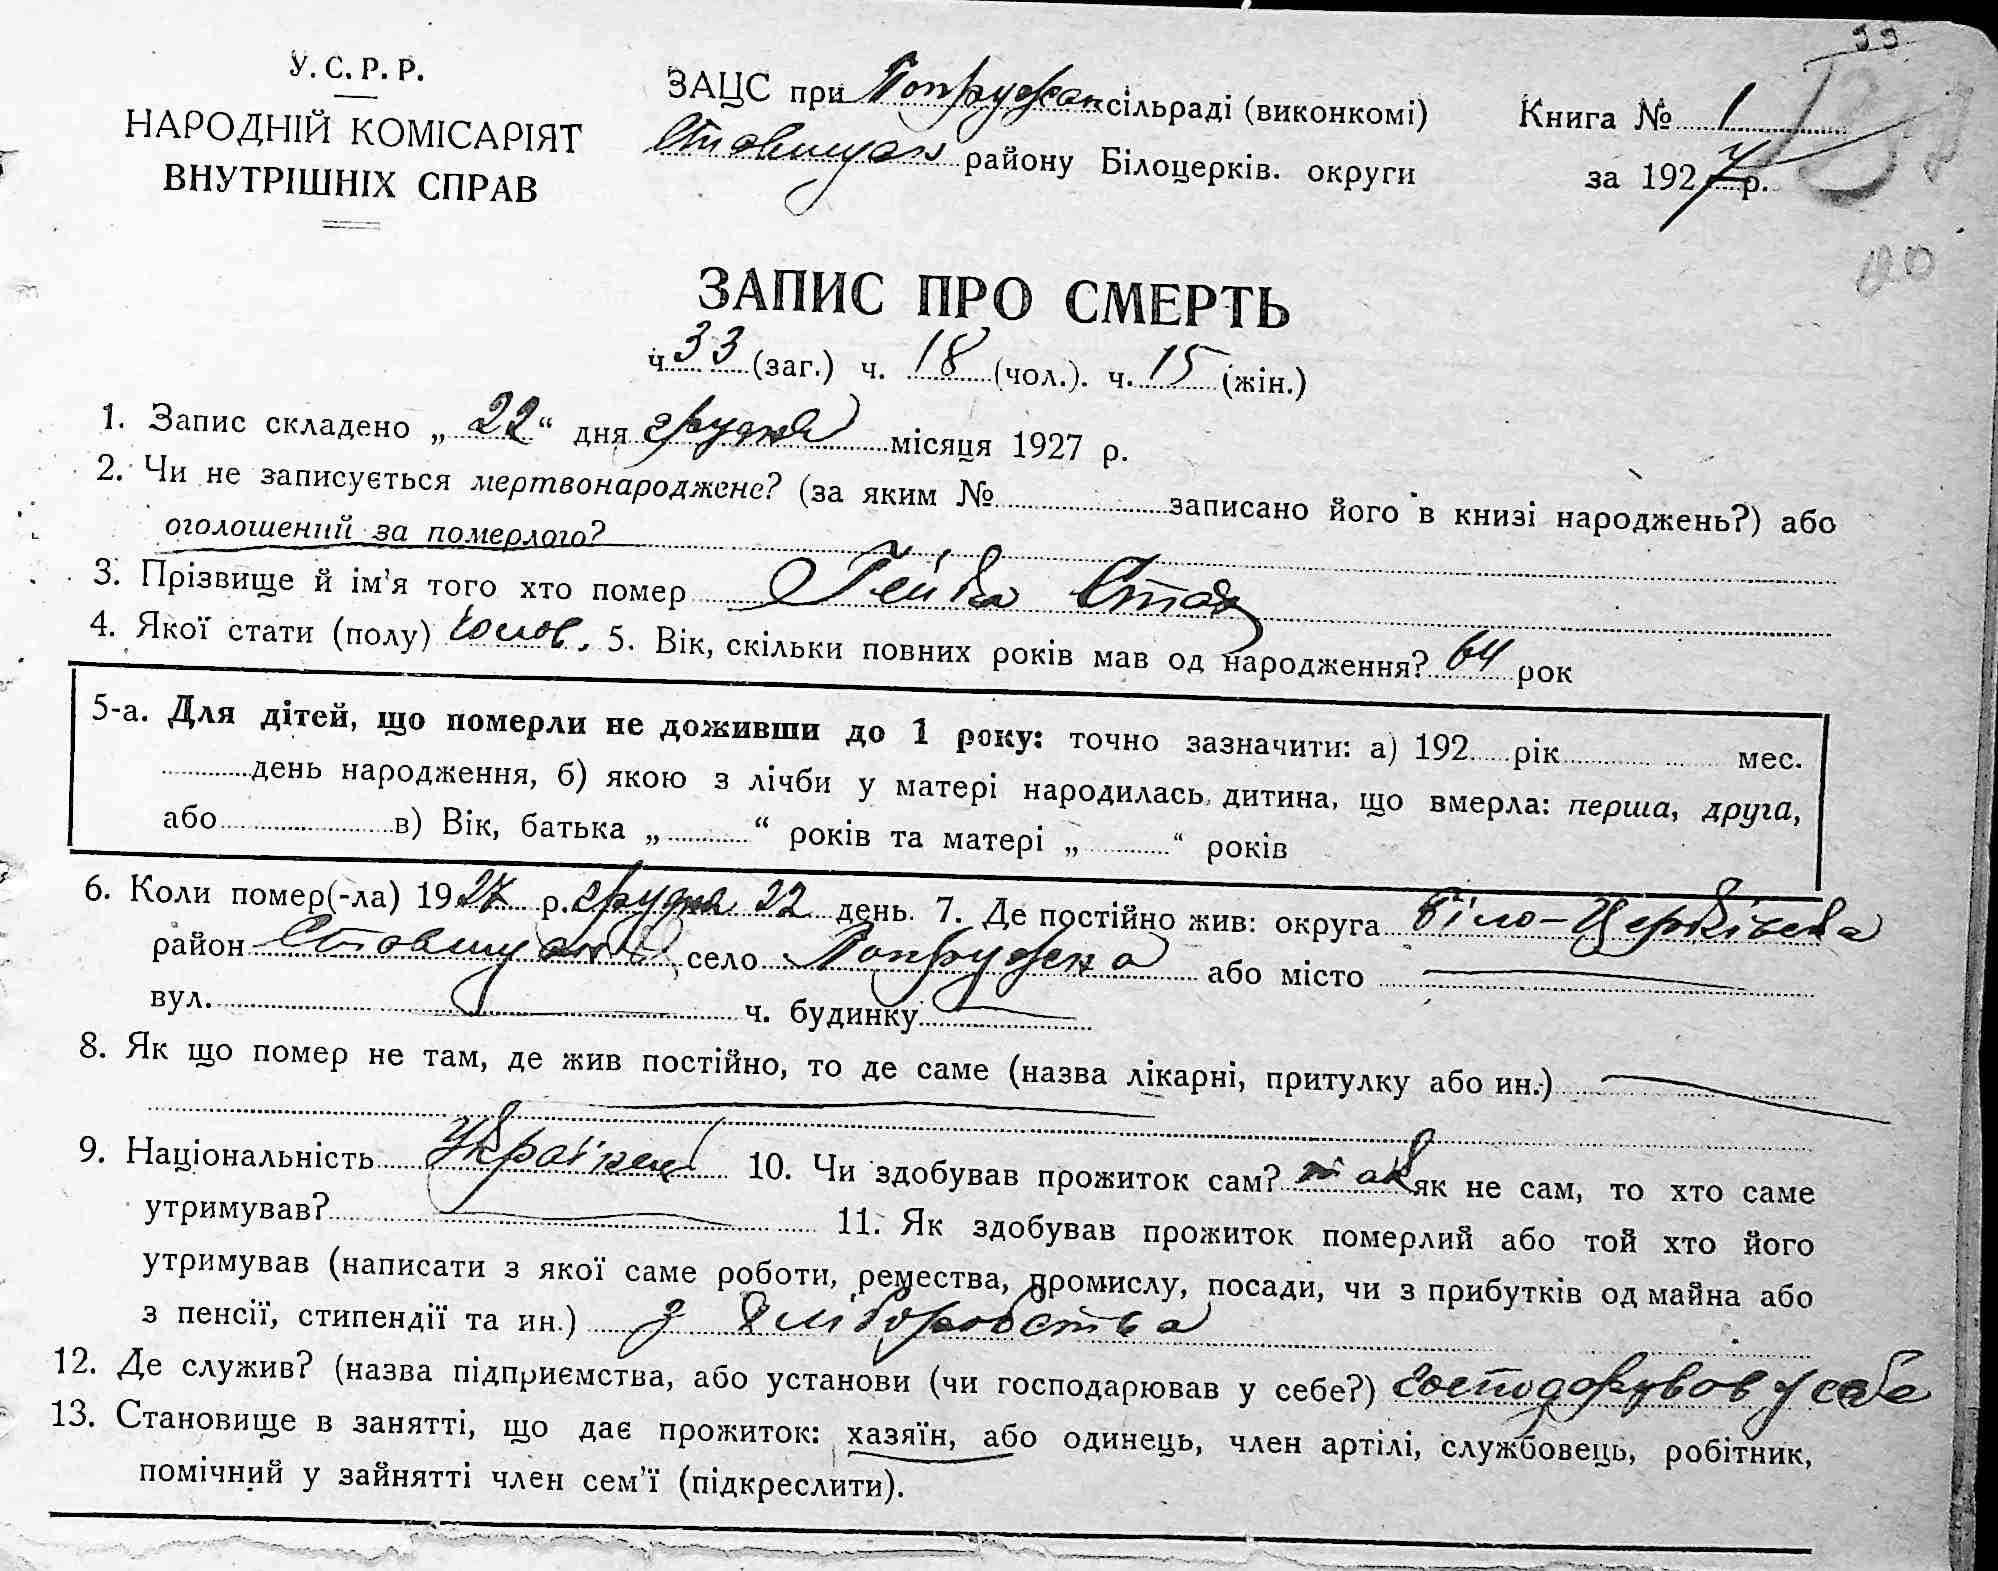 У. С. Р. Р.
НАРОДНІЙ КОМІСАРІЯТ
ВНУТРІШНІХ СПРАВ
ЗАЦС при Попружан сільраді (виконкомі)
Ставищан району Білоцерків. округи
Книга № 1
за 1927 р.
ЗАПИС ПРО СМЕРТЬ
ч. 33 (заг.) ч. 18 (чол.). ч. 15 (жін.)
1. Запис складено „ 22 “ дня грудня місяця 1927 р.
2. Чи не записується мертвонароджене? (за яким № записано його в книзі народжень?) або
оголошений за померлого?
3. Прізвище й ім'я того хто помер Гейва
4. Якої стати (полу) Чолов. 5. Вік, скільки повних років мав од народження? 64 рок
5-а. Для дітей, що померли не доживши до 1 року: точно зазначити: а) 192 рік мес.
день народження, б) якою з лічби у матері народилась дитина, що вмерла: перша, друга,
або в) Вік, батька „ “ років та матері „ “ років
6. Коли помер(-ла) 1927 р. грудня 22 день. 7. Де постійно жив: округа Біло-Церківська
район село Попружна або місто
вул. ч. будинку
8. Як що помер не там, де жив постійно, то де саме (назва лікарні, притулку або ин.)
9. Національність Українец 10. Чи здобував прожиток сам? так як не сам, то хто саме
утримував? 11. Як здобував прожиток померлий або той хто його
утримував (написати з якої саме роботи, ремества, промислу, посади, чи з прибутків од майна або
з пенсії, стипендії та ин.) з Хліборобства
12. Де служив? (назва підприємства, або установи (чи господарював у себе?) господорував у себе
13. Становище в занятті, що дає прожиток: хазяїн, або одинець, член артілі, службовець, робітник,
помічний у зайнятті член сем'ї (підкреслити).